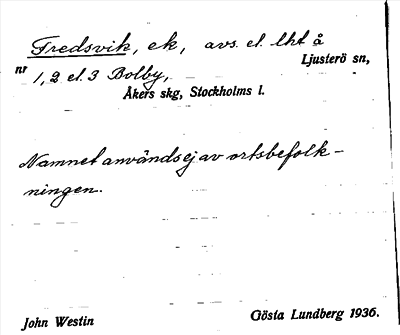 Fredsvik, ek, avs. el. lht å
Ljusterö sn,
nr 1, 2 el. 3 Bolby,
Åkers skg, Stockholms l.
Namnet användes ej av ortsbefolk-
ningen.
John Westin
Gösta Lundberg 1936.